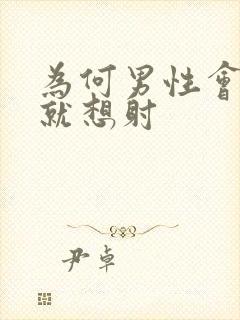 為何男性會
就想射
尹卓